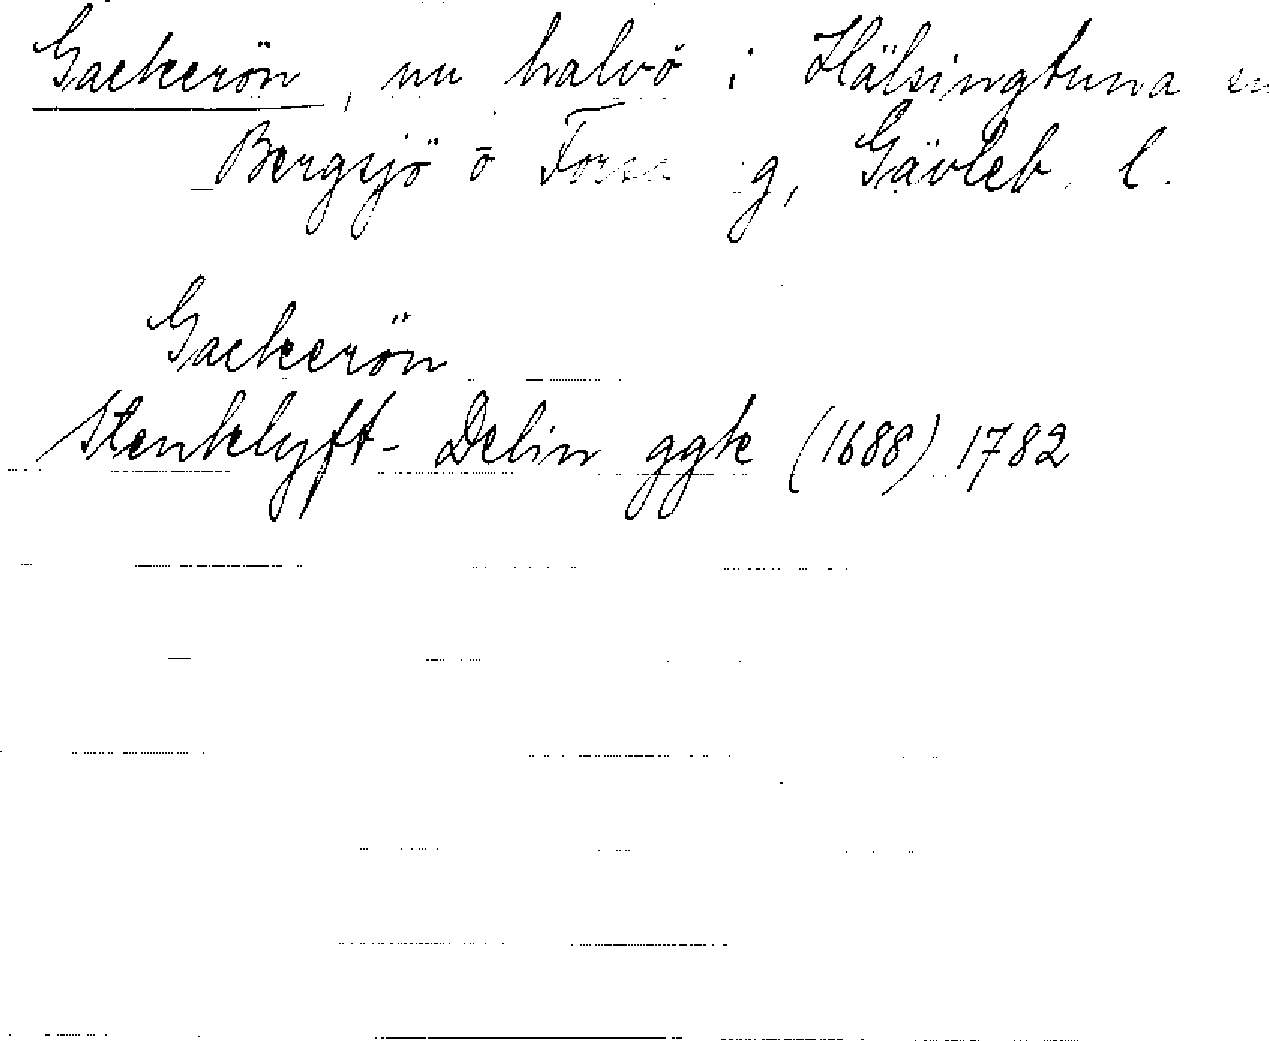 Gackerön, nu halvö i Hälsingtuna sn
Bergsjö o Forsa tg, Gävleb. l.
Gackerön
Stenklyft- Delin ggk (1688) 1782